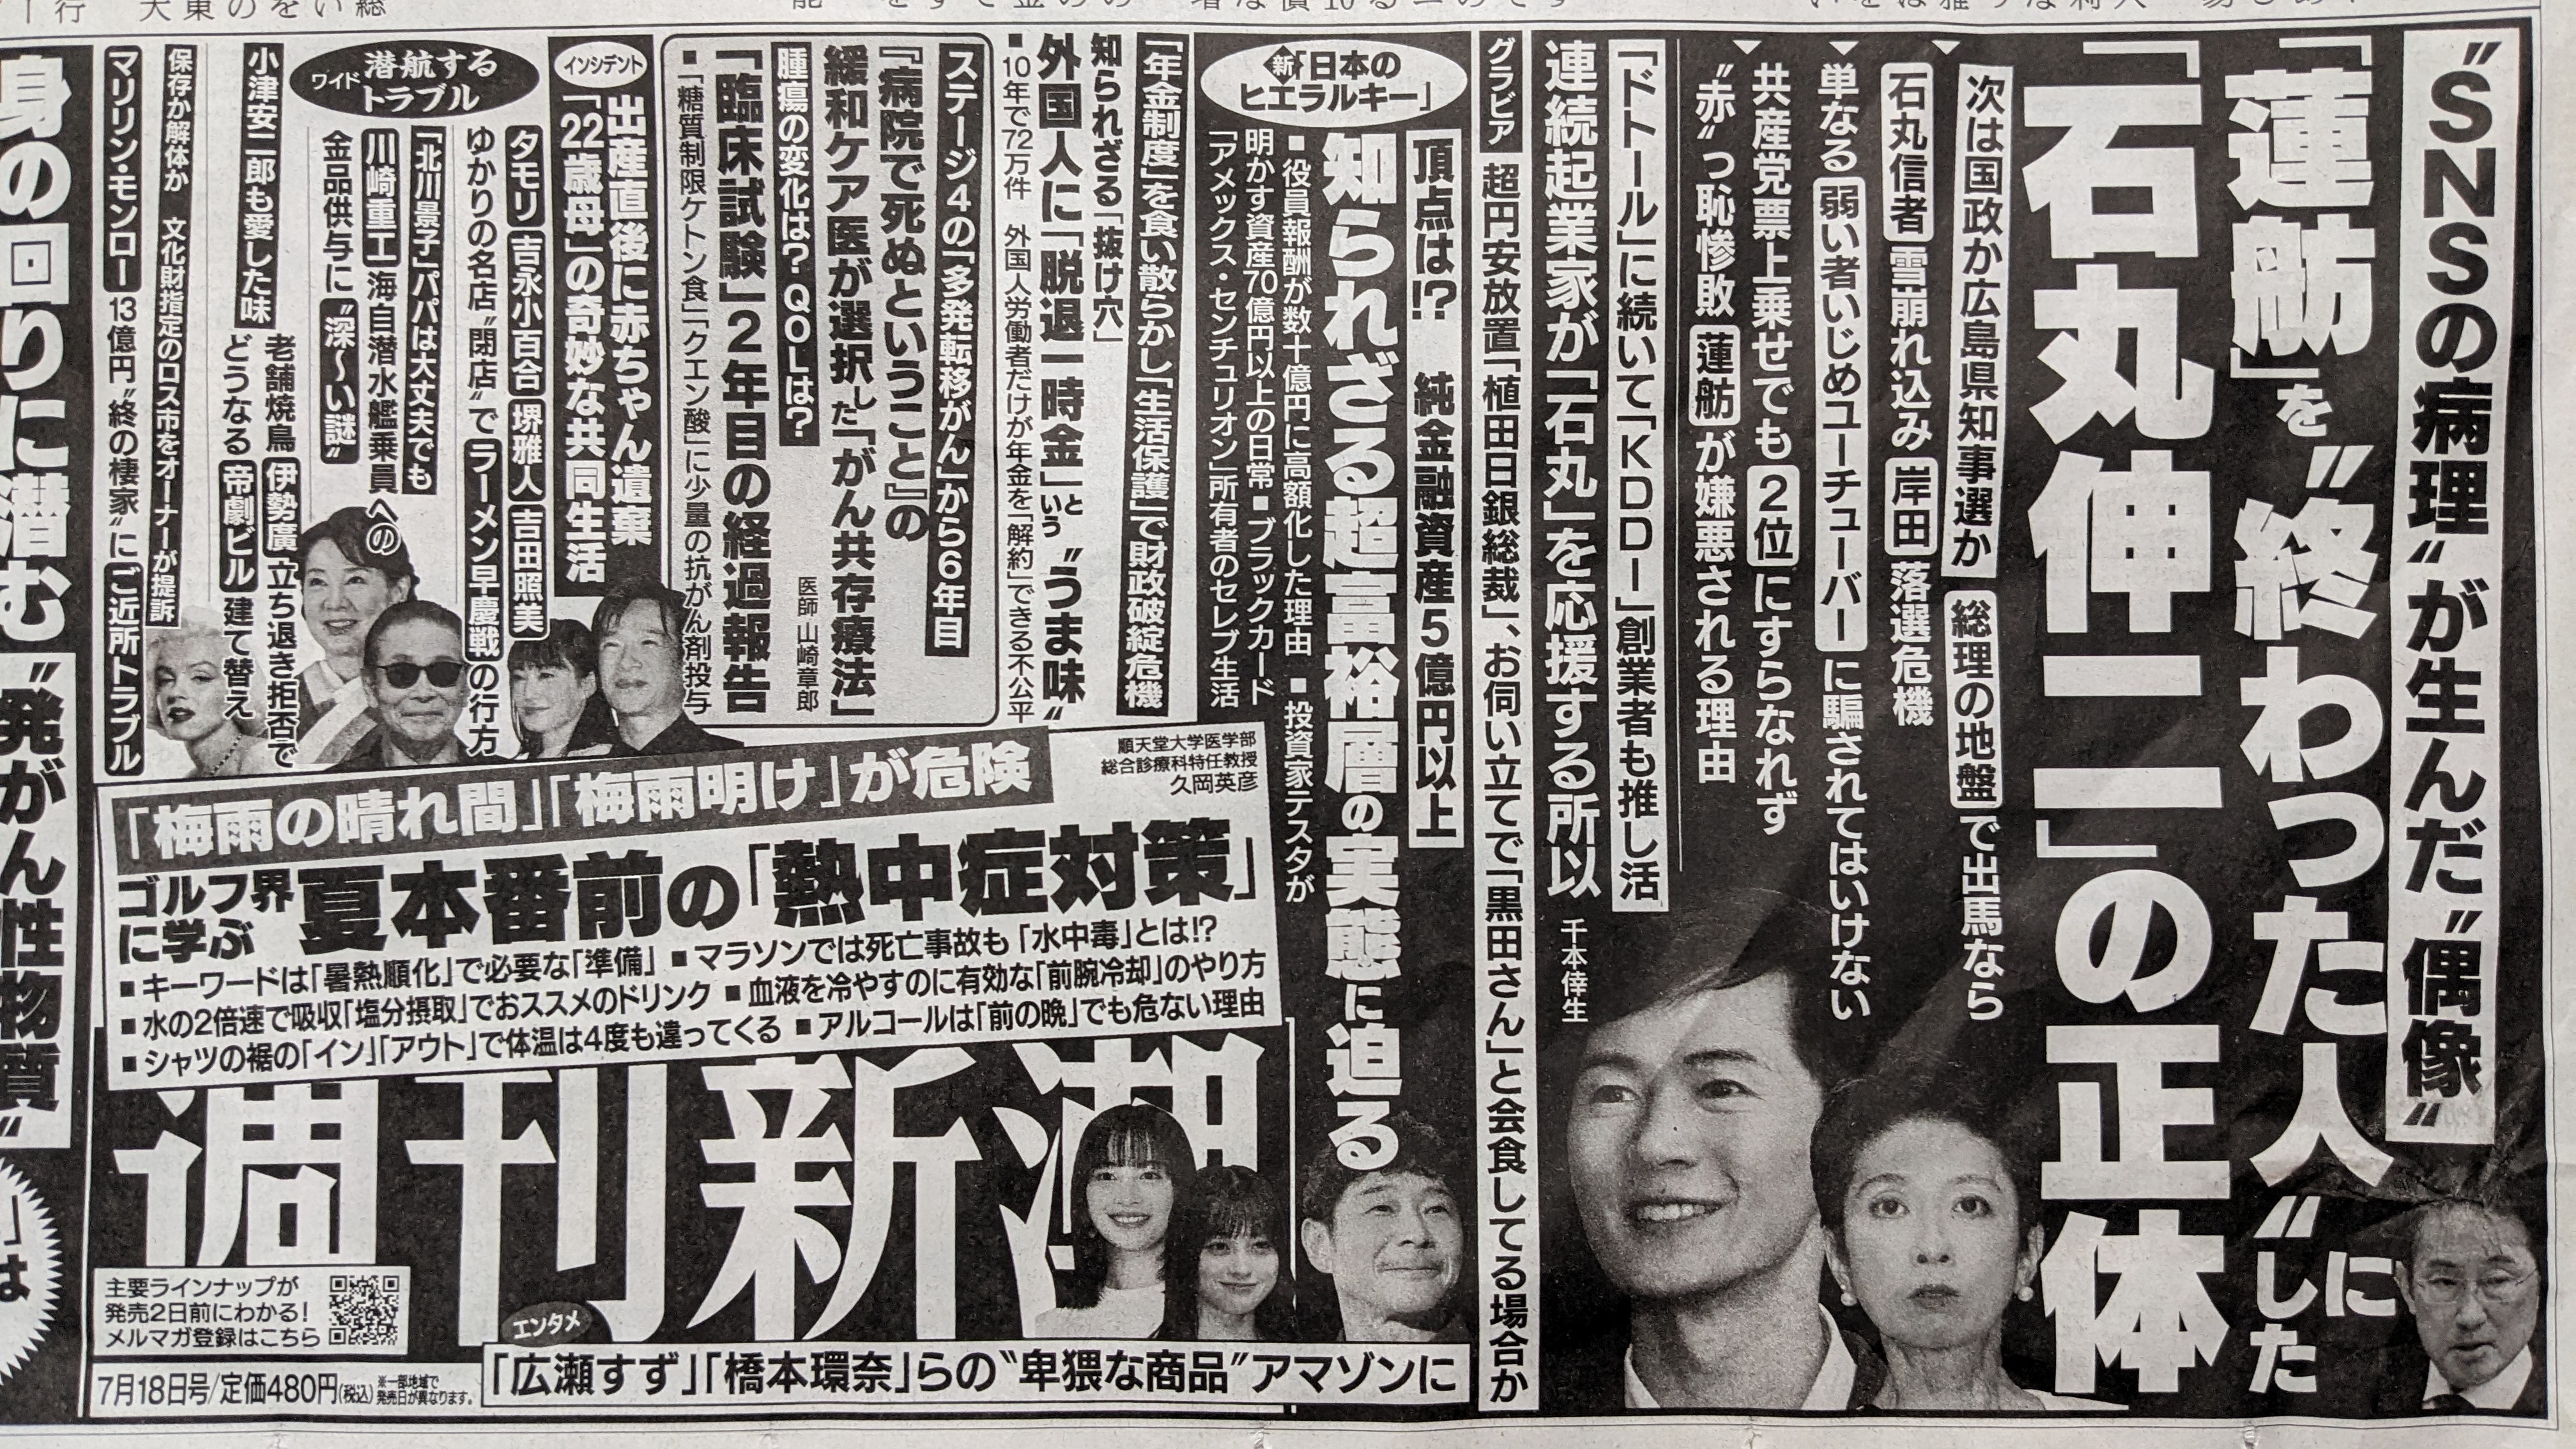 “SNSの病理”が生んだ“偶像”
「蓮舫」を“終わった人”にした
「石丸伸二」の正体
次は国政か広島県知事選か 総理の地盤で出馬なら
石丸信者雪崩れ込み 岸田落選危機
単なる弱い者いじめユーチューバーに騙されてはいけない
共産党票上乗せでも2位にすらなれず
“赤”っ恥惨敗 蓮舫が嫌悪される理由
「ドトール」に続いて「KDDI」創業者も推し活
連続起業家が「石丸」を応援する所以 千本倖生
グラビア 超円安放置「植田日銀総裁」、お伺い立てで「黒田さん」と会食してる場合か
新「日本のヒエラルキー」
頂点は!? 純金融資産5億円以上
知られざる超富裕層の実態に迫る
■役員報酬が数十億円に高額化した理由 ■投資家テスタが
明かす資産70億円以上の日常■ブラックカード
「アメックス・センチュリオン」所有者のセレブ生活
「年金制度」を食い散らかし「生活保護」で財政破綻危機
知られざる「抜け穴」
外国人に「脱退一時金」という“うま味”
■10年で72万件 外国人労働者だけが年金を「解約」できる不公平
ステージ4の「多発転移がん」から6年目
『病院で死ぬということ』の
緩和ケア医が選択した「がん共存療法」
腫瘍の変化は?QOLは?
「臨床試験」2年目の経過報告
医師 山崎章郎
■「糖質制限ケトン食」「クエン酸」に少量の抗がん剤投与
インシデント
出産直後に赤ちゃん遺棄
「22歳母」の奇妙な共同生活
ワイド 潜航するトラブル
タモリ 吉永小百合 堺雅人 吉田照美
ゆかりの名店“閉店”でラーメン早慶戦の行方
「北川景子」パパは大丈夫でも
川崎重工 海自潜水艦乗員への
金品供与に“深〜い謎”
小津安二郎も愛した味
老舗焼鳥 伊勢廣 立ち退き拒否で
どうなる 帝劇ビル 建て替え
保存か解体か 文化財指定のロス市をオーナーが提訴
マリリン・モンロー 13億円“終の棲家”にご近所トラブル
身の回りに潜む“発がん性物質”
は
「梅雨の晴れ間」「梅雨明け」が危険
順天堂大学医学部
総合診療科特任教授
久岡英彦
ゴルフ界に学ぶ 夏本番前の「熱中症対策」
■キーワードは「暑熱順化」で必要な「準備」 ■マラソンでは死亡事故も「水中毒」とは!?
■水の2倍速で吸収「塩分摂取」でおススメのドリンク ■血液を冷やすのに有効な「前腕冷却」のやり方
■シャツの裾の「イン」「アウト」で体温は4度も違ってくる ■アルコールは「前の晩」でも危ない理由
週刊新潮
主要ラインナップが
発売2日前にわかる!
メルマガ登録はこちら
7月18日号/定価480円(税込)
※一部地域で発売日が異なります。
エンタメ
「広瀬すず」「橋本環奈」らの“卑猥な商品”アマゾンに